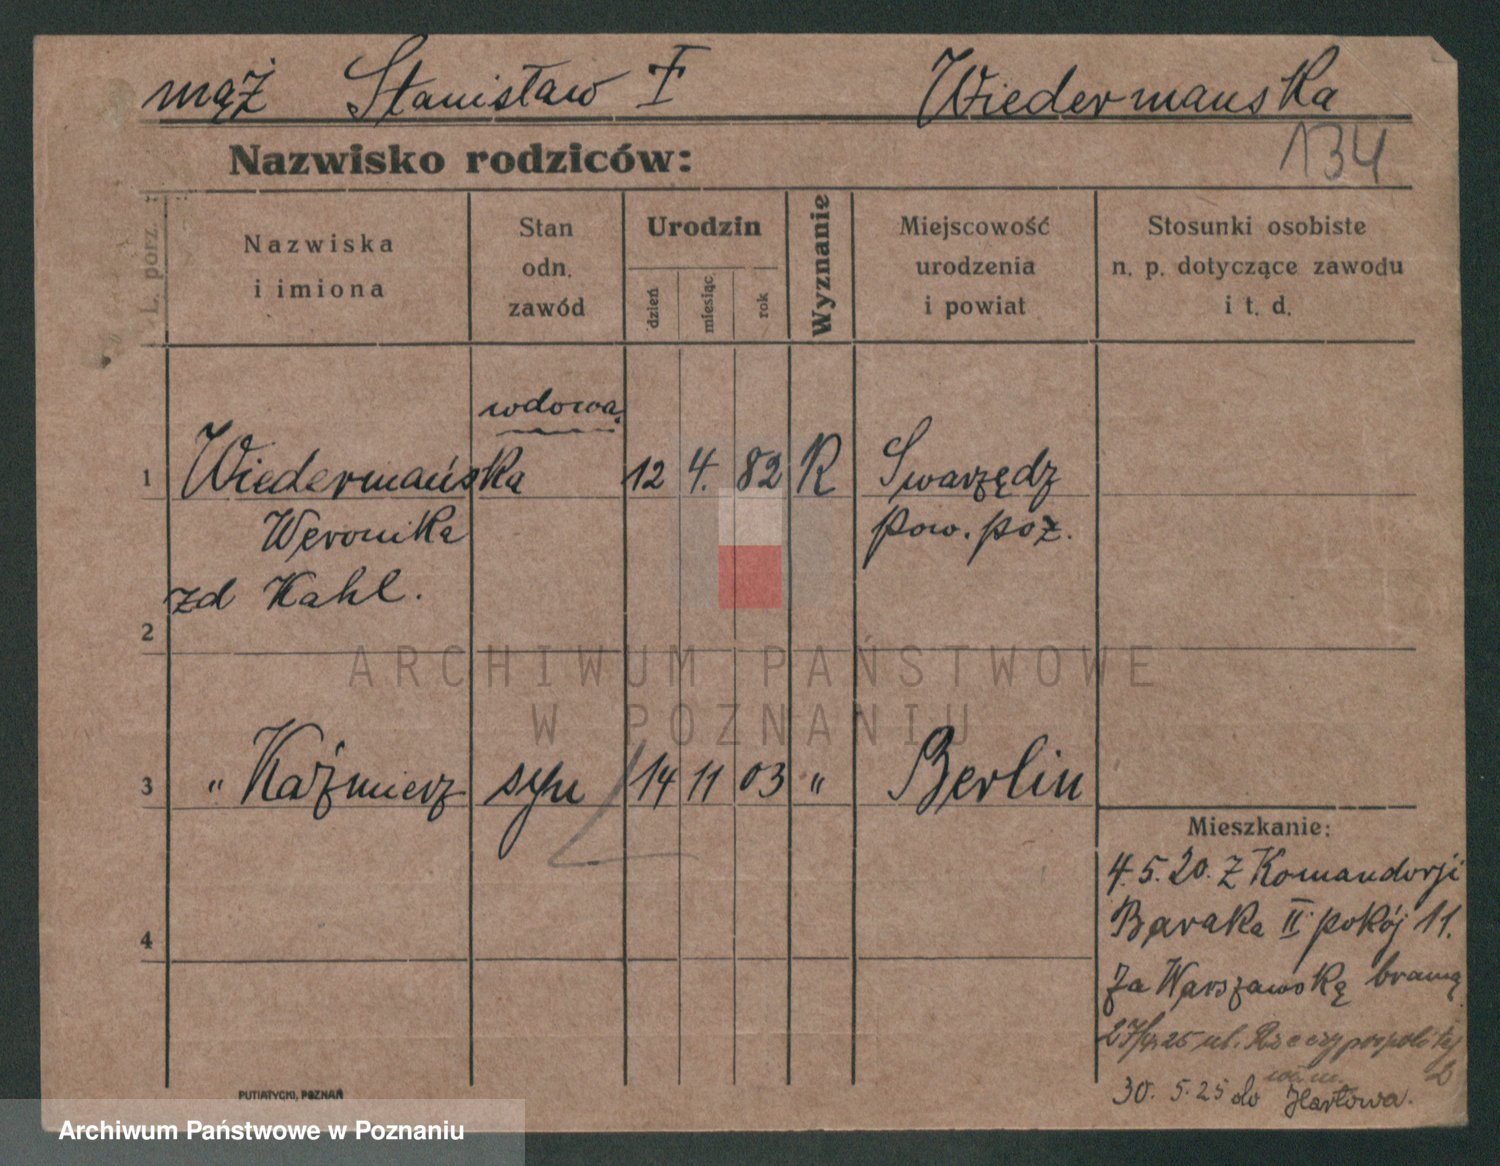 mąż Stanisław F Wiedermanska
134
Nazwisko rodziców:
L. porz.
Nazwiska
i imiona
Stan
odn.
zawód
Urodzin
dzień
miesiąc
rok
Wyznanie
Miejscowość
urodzenia
i powiat
Stosunki osobiste
n. p. dotyczące zawodu
i t. d.
wdowa
1 Wiedermańska 12 4. 82 R Swarzędz
Weronika pow. poz.
zd Kahl.
2
ARCHIWUM PAŃSTWOWE
W POZNANIU
3 " Kaźmierz syn 14 11 03 " Berlin
Mieszkanie:
4.5.20. z Komandorji
Baraka II pokój 11.
4
za Warszawską bramą
27/4 25 ul. Rzeczypospolitej
2
30. 5. 25 do
PUTIATYCKI, POZNAŃ
Archiwum Państwowe w Poznaniu